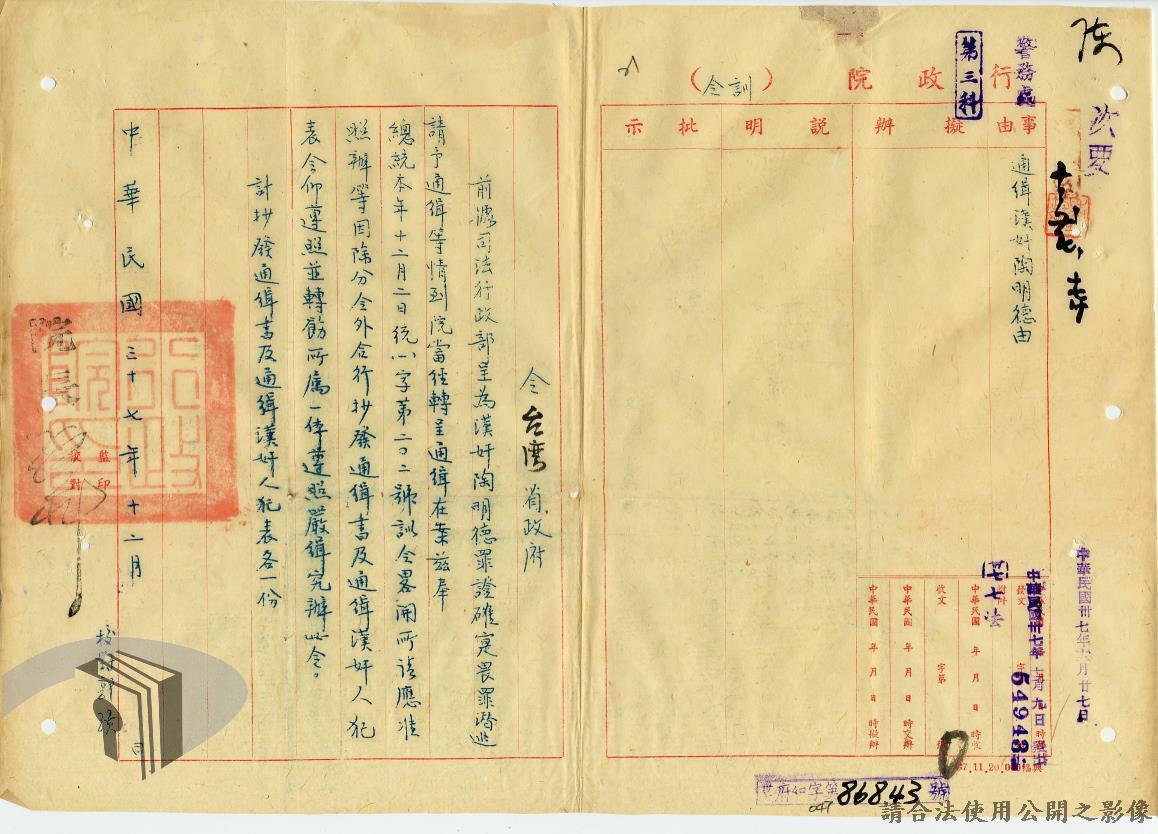 次要
警務處
第三科
行政院（訓令）
事由
擬辦
說明
批示
通緝漢奸陶明德由
中華民國卅七年十二月廿七日
中華民國卅七年十二月九日
七七法
54948
發文
收文 字第
中華民國 年 月 日 時收
中華民國 年 月 日 時交辦
中華民國 年 月 日 時擬辦
37.11.20.000
86843號
047
令台灣省政府
前據司法行政部呈為漢奸陶明德罪證確寔畏罪潛逃
請予通緝等情到院當經轉呈通緝在案茲奉
總統本年十二月二日統八字第二〇二號訓令畧開所請應准
照辦等因除分令外合行抄發通緝書及通緝漢奸人犯
表令仰遵照並轉飭所屬一体遵照嚴緝究辦此令。
計抄發通緝書及通緝漢奸人犯表各一份
院長
中華民國三十七年十二月 日
監印
校對
請合法使用公開之影像